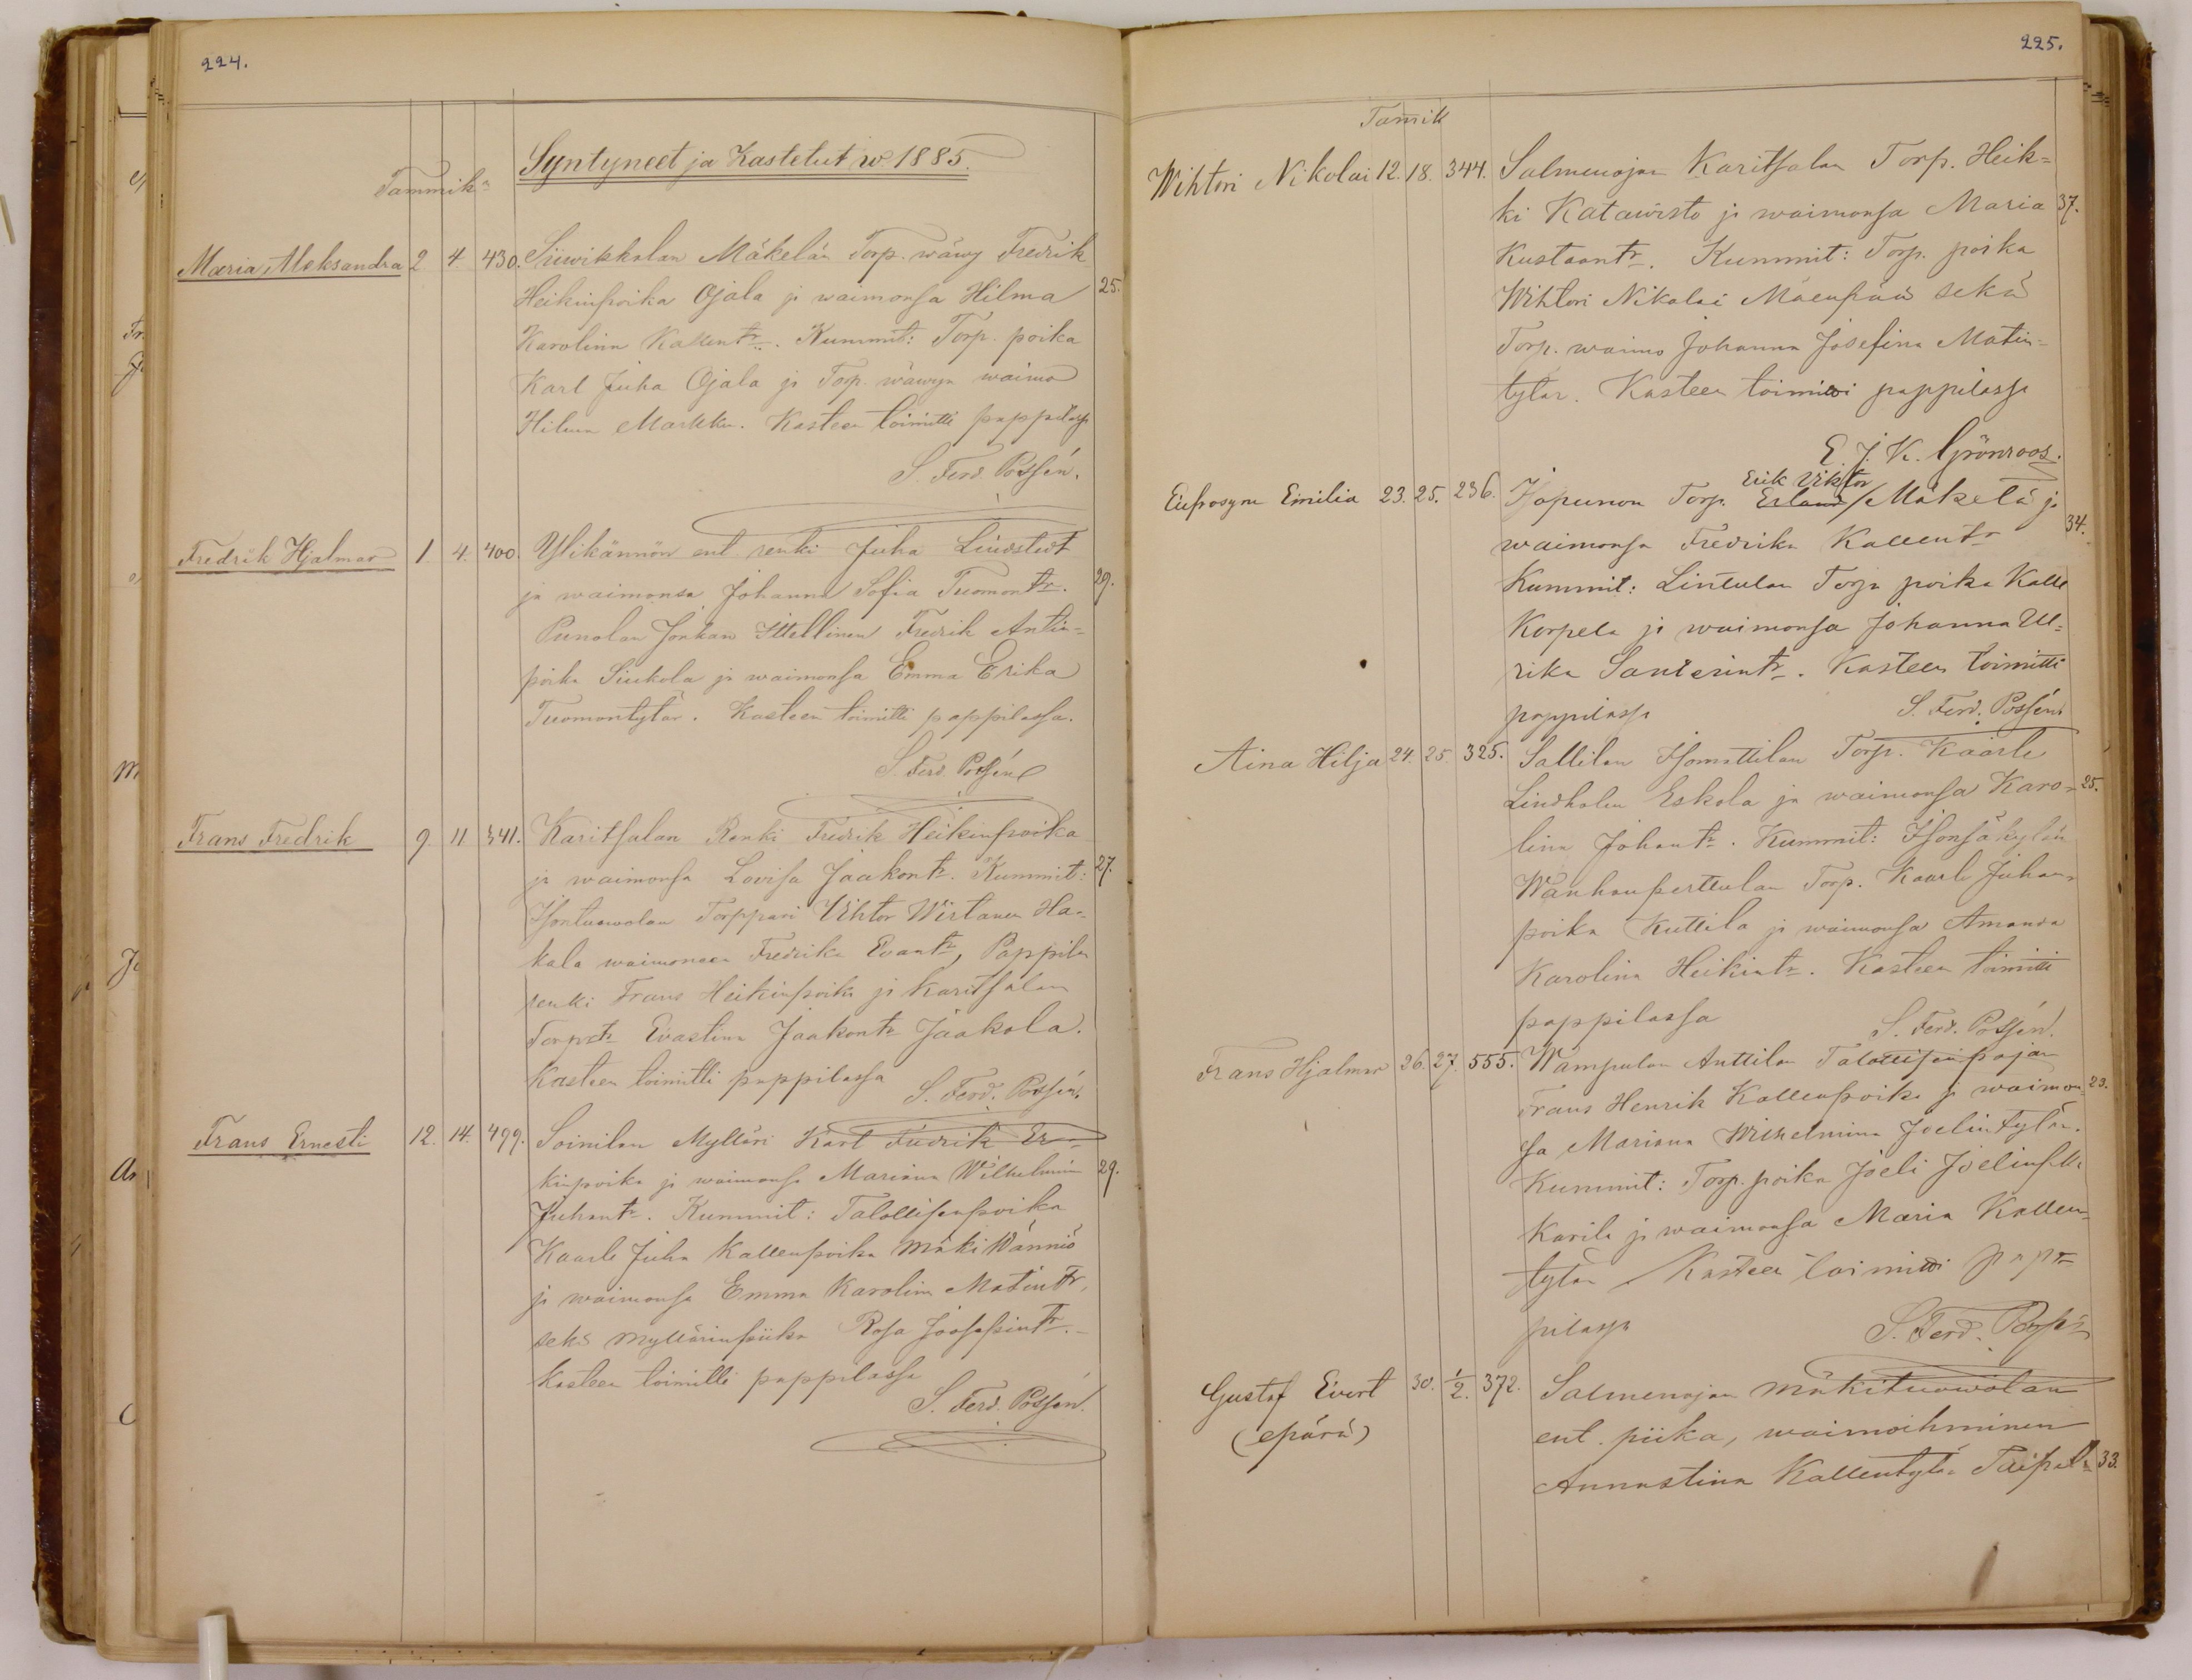 224.
Syntyneet ja Kastetut w. 1885.
Tammik.
Maria Aleksandra 2. 4. 430. Siuwikkolan Mäkelän Torp. wäwy Fredrik
Heikinpoika Ojala ja waimonsa Hilma 25.
Karolina Kallentr. Kummit: Torp. poika
Karl Juha Ojala ja Torp. wäwyn waimo
Hilma Markku. Kasteen toimitti pappilassa
S. Ferd. Possén.
Fredrik Hjalmar 1. 4. 400. Ylikännön ent renki Juha Lindstedt
ja waimonsa Johanna Sofia Tuomontr. 29.
Punolan Jonkan Itellinen Fredrik Antin-
poika Siukola ja waimonsa Emma Erika
Tuomontytär. Kasteen toimitti pappilassa.
S. Ferd. Possén
Frans Fredrik 9. 11. 341. Karitsalan Renki Fredrik Heikinpoika
ja waimonsa Lovisa Jaakontr. Kummit: 27.
Isontuowolan Torppari Vihtor Wirtanen Ha-
kala waimoneen Fredrika Evantr, Pappilan
renki Frans Heikinpoika ja Karitsalan
Torp. tr Evastina Jaakontr Jaakola.
Kasteen toimitti pappilassa
S. Ferd. Possén.
Frans Ernesti 12. 14. 499. Soinilan Mylläri Karl Fredrik Er-
kinpoika ja waimonsa Mariana Wilhelmina 29.
Juhantr. Kummit: Talollisenpoika
Kaarle Juha Kallenpoika Mäki Wänniö
ja waimonsa Emma Karolina Matintr,
sekä Myllärinpiika Rosa Joosepintr.
Kasteen toimitti pappilassa
S. Ferd. Possén.
225.
Tamik
Wihtori Nikolai 12. 18. 344. Salmenojan Karitsalan Torp. Heik-
ki Katawisto ja waimonsa Maria 37.
Kustaantr. Kummit: Torp. poika
Wihtori Nikolai Mäenpää sekä
Torp. waimo Johanna Josefina Matin-
tytär. Kasteen toimitti pappilassa
E. J. K. Grönroos.
Erik Viktor
Eufrosyne Emilia 23. 25. 236. Hapunon Torp. Erland / Mäkelä ja
waimonsa Fredrika Kallentr 34.
Kummit: Lintulan Torp poika Kalle
Korpela ja waimonsa Johanna Ul-
rika Santerintr. Kasteen toimitti
pappilassa S. Ferd. Possén.
Aina Hilja 24. 25. 325. Sallilan Isomattilan Torp. Kaarle
Lindholm Eskola ja waimonsa Karo- 25.
lina Johantr. Kummit: Isonsäkylän
Wanhanperttulan Torp. Kaarle Juhan-
poika Kuttila ja waimonsa Amanda
Karolina Heikintr. Kasteen toimitti
pappilassa S. Ferd. Possén.
Frans Hjalmar 26. 27. 555. Wampulan Anttilan Talollisen pojan
Frans Henrik Kallenpoika ja waimon- 23.
sa Mariana Wilhelmina Joelintytär.
Kummit: Torp. poika Joeli Joelinp.
Karila ja waimonsa Maria Kallen-
tytär Kasteen toimitti pap-
pilassa S. Ferd. Possén
Gustaf Evert 30. 1/2. 372. Salmenojan mäkituowolan
(epärä) ent. piika, waimoihminen
Annastina Kallentytär Taipale 33.